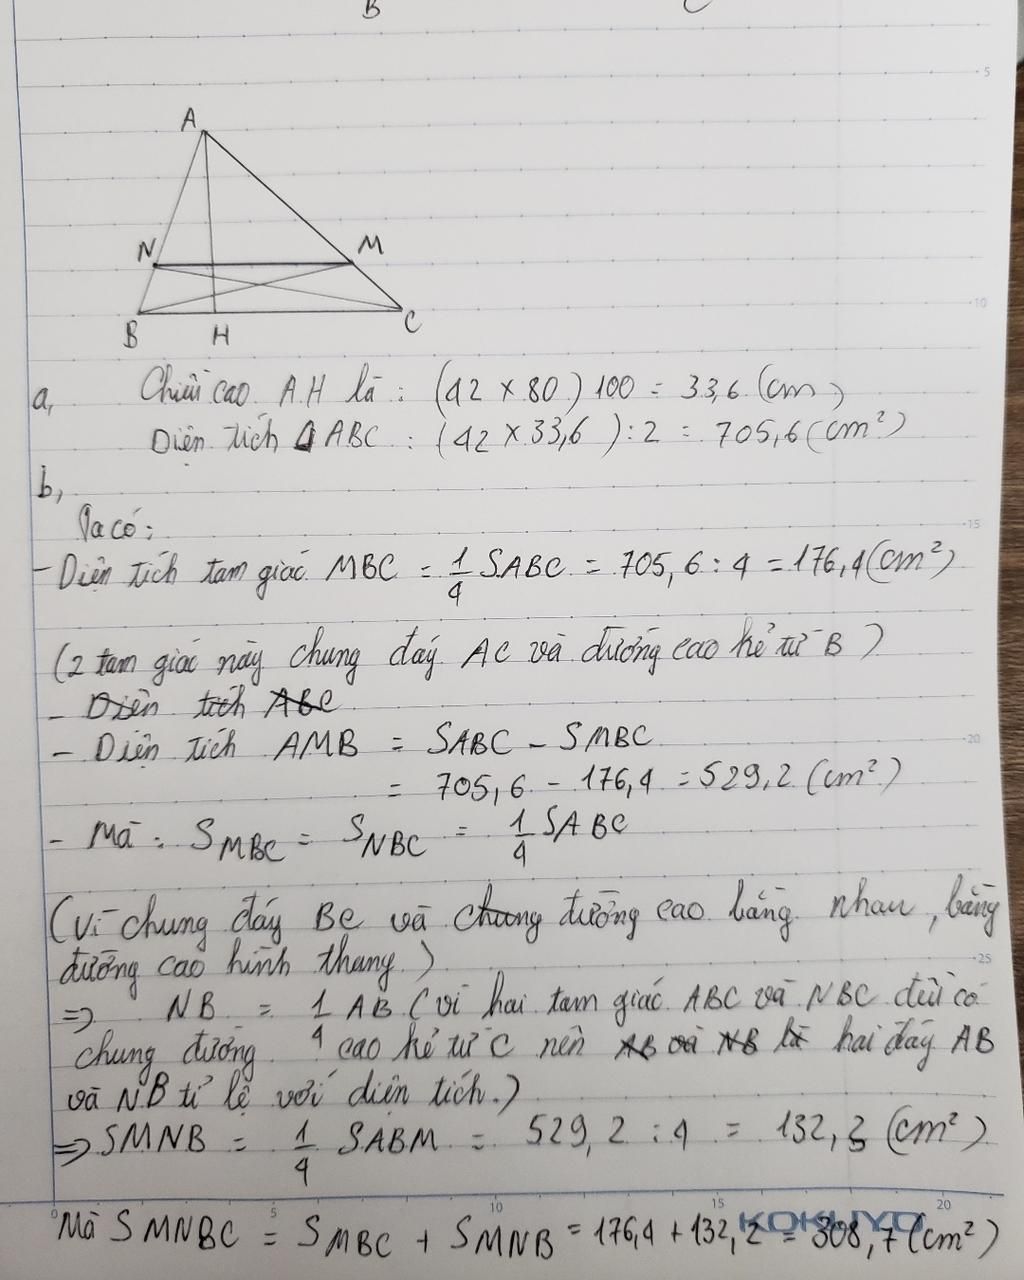 B C
5
A
N M
10
B H C
a, Chiều cao AH là : (42 × 80) 100 = 33,6 (cm)
Diện tích △ ABC : (42 × 33,6) : 2 = 705,6 (cm²)
b,
Ta có:
15
- Diện tích tam giác MBC = 1/4 SABC = 705,6 : 4 = 176,4 (cm²)
(2 tam giác này chung đáy AC và đường cao kẻ từ B)
- Diện tích ABC
- Diện tích AMB = SABC - SMBC
20
= 705,6 - 176,4 = 529,2 (cm²)
- Mà : SMBC = SNBC = 1/4 SABC
(Vì chung đáy BC và chung đường cao bằng nhau, bằng
đường cao hình thang.)
25
=> NB = 1/4 AB (vì hai tam giác ABC và NBC đều có
chung đường cao kẻ từ C nên AB và NB là hai đáy AB
và NB tỉ lệ với diện tích.)
=> SMNB = 1/4 SABM = 529,2 : 4 = 132,3 (cm²)
0 5 10 15 20
KOKUYO
Mà SMNBC = SMBC + SMNB = 176,4 + 132,2 = 308,7 (cm²)